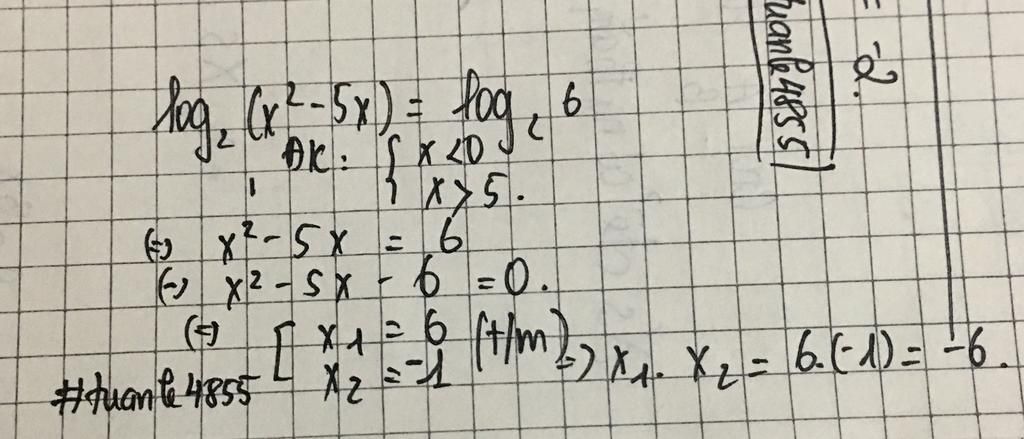 log₂ (x² - 5x) = log₂ 6
ĐK: { x < 0
x > 5.
(=) x² - 5x = 6
(=) x² - 5x - 6 = 0.
(=) [ x₁ = 6
x₂ = -1 (t/m) => x₁. x₂ = 6.(-1) = -6.
#tuanle4855
= -2.
tuanle4855